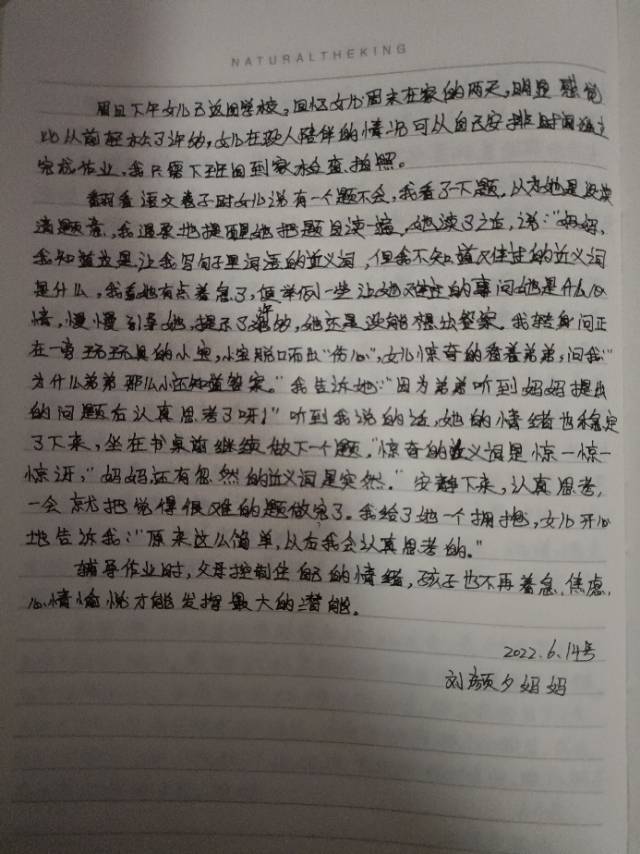 NATURALTHEKING
周日下午女儿已返回学校，回忆女儿周末在家的两天，明显感觉
比从前轻松了许多，女儿在没人陪伴的情况可以自己安排时间
完成作业，我只需下班回到家检查、拍照。
翻看语文卷子时女儿说有一个题不会，我看了下题，以为她是没读
清题意，我温柔地提醒她把题目读一遍，她读了之后，说：“妈妈，
我知道这是让我写句子里词语的近义词，但我不知道的近义词
是什么，我看她有点着急了，便举例一些让她的事问她是什么心
情，慢慢引导她，提示了许多，她还是没能想出答案。我转身问正
在一旁玩玩具的小宝，小宝脱口而出“伤心”，女儿惊奇的看着弟弟，问我：“
为什么弟弟那么小还知道答案。”我告诉她：“因为弟弟听到妈妈提出
的问题后认真思考了呀！”听到我说的话，她的情绪也稳定
了下来，坐在书桌前继续做下一个题。“惊奇的近义词是惊一惊一
惊讶，”妈妈还有忽然的近义词是突然。”安静下来，认真思考，
一会就把觉得很难的题做完了。我给了她一个拥抱，女儿开心
地告诉我：“原来这么简单，以后我会认真思考的。”
辅导作业时，父母控制住自己的情绪，孩子也不再着急、焦虑，
心情愉悦才能发挥最大的潜能。
2022.6.14号
刘颜夕妈妈